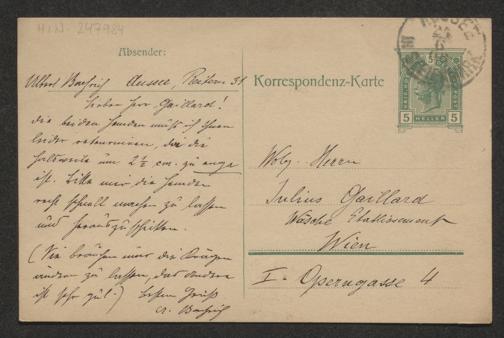 HIN-247984
Absender:
Albert Bachrich Aussee, Reitern 31.
Lieber Herr Gaillard!
die beiden Hemden muß ich Ihnen
leider retournieren, da die
Halsweite um 2½ cm. zu enge
ist. Bitte mir die Hemden
rasch machen zu lassen
und herauszuschicken.
(Sie brauchen nur die Krägen
ändern zu lassen, das andere
ist sehr gut.) Besten Gruß
A. Bachrich
Korrespondenz-Karte
5 HELLER 5
AUSSEE
IN STEIERMARK
Wolg. Herrn
Julius Gaillard
Wäsche Etablissement
Wien
I. Operngasse 4